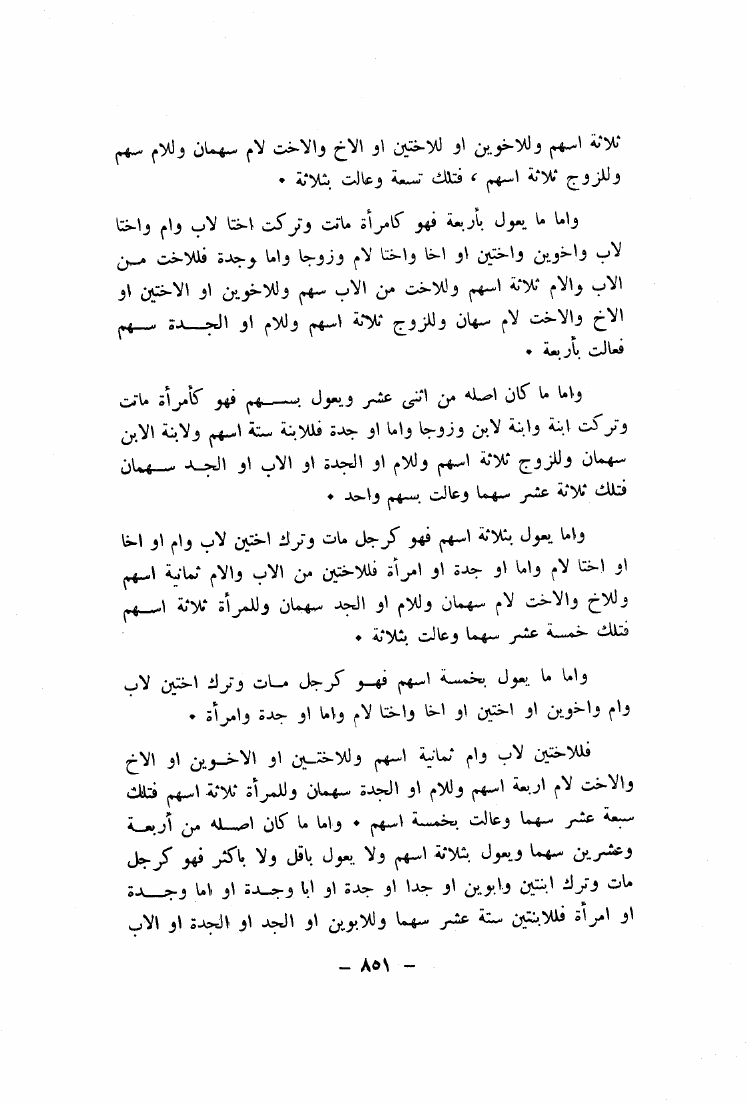 ثلاثة اسهم وللاخوين او للاختين او الاخ والاخت لام سهمان وللام سهم
وللزوج ثلاثة اسهم ، فتلك تسعة وعالت بثلاثة •
واما ما يعول بأربعة فهو كامرأة ماتت وتركت اختا لاب وام واختا
لاب واخوين واختين او اخا واختا لام وزوجا واما وجدة فللاخت مـن
الاب والام ثلاثة اسهم وللاخت من الاب سهم وللاخوين او الاختين او
الاخ والاخت لام سهان وللزوج ثلاثة اسهم وللام او الجـــدة ســهم
فعالت بأربعة •
واما ما كان اصله من اثنى عشر ويعول بســـهم فهو كأمرأة ماتت
وتركت ابنة وابنة لابن وزوجا واما او جدة فللابنة ستة اسهم ولابنة الابن
سهمان وللزوج ثلاثة اسهم وللام او الجدة او الاب او الجـد ســهمان
فتلك ثلاثة عشر سهما وعالت بسهم واحد •
واما يعول بثلاثة اسهم فهو كرجل مات وترك اختين لاب وام او اخا
او اختا لام واما او جدة او امرأة فللاختين من الاب والام ثمانية اسهم
وللاخ والاخت لام سهمان وللام او الجد سهمان وللمرأة ثلاثة اســهم
فتلك خمسة عشر سهما وعالت بثلاثة •
واما ما يعول بخمسة اسهم فهـو كرجل مـات وترك اختين لاب
وام واخوين او اختين او اخا واختا لام واما او جدة وامرأة •
فللاختين لاب وام ثمانية اسهم وللاختـين او الاخـوين او الاخ
والاخت لام اربعة اسهم وللام او الجدة سهمان وللمرأة ثلاثة اسهم فتلك
سبعة عشر سهما وعالت بخمسة اسهم • واما ما كان اصـله من أربعـة
وعشرين سهما ويعول بثلاثة اسهم ولا يعول باقل ولا باكثر فهو كرجل
مات وترك ابنتين وابوين او جدا او جدة او ابا وجـدة او اما وجـــدة
او امرأة فللابنتين ستة عشر سهما وللابوين او الجد او الجدة او الاب
– ٨٥١ –